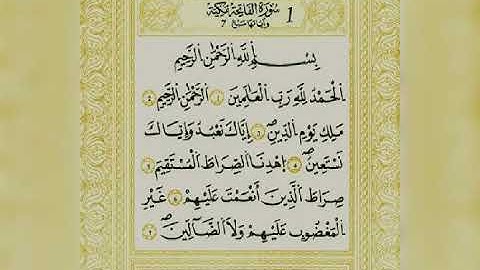 سُورَةُ الْفَاتِحَةِ مَكِّيَّةٌ 1
وآياتها سبع 7
بِسْمِ اِ۬للَّهِ اِ۬لرَّحْمَٰنِ اِ۬لرَّحِيمِ
اَ۬لْحَمْدُ لِلهِ رَبِّ اِ۬لْعَٰلَمِينَ اَ۬لرَّحْمَٰنِ اِ۬لرَّحِيمِ
مَلِكِ يَوْمِ اِ۬لدِّينِ إِيَّاكَ نَعْبُدُ وَإِيَّاكَ
نَسْتَعِينُ اُ۪هْدِنَا اَ۬لصِّرَٰطَ اَ۬لْمُسْتَقِيمَ
صِرَٰطَ اَ۬لذِينَ أَنْعَمْتَ عَلَيْهِمْ غَيْرِ
اِ۬لْمَغْضُوبِ عَلَيْهِمْ وَلَا اَ۬لضَّآلِّينَ